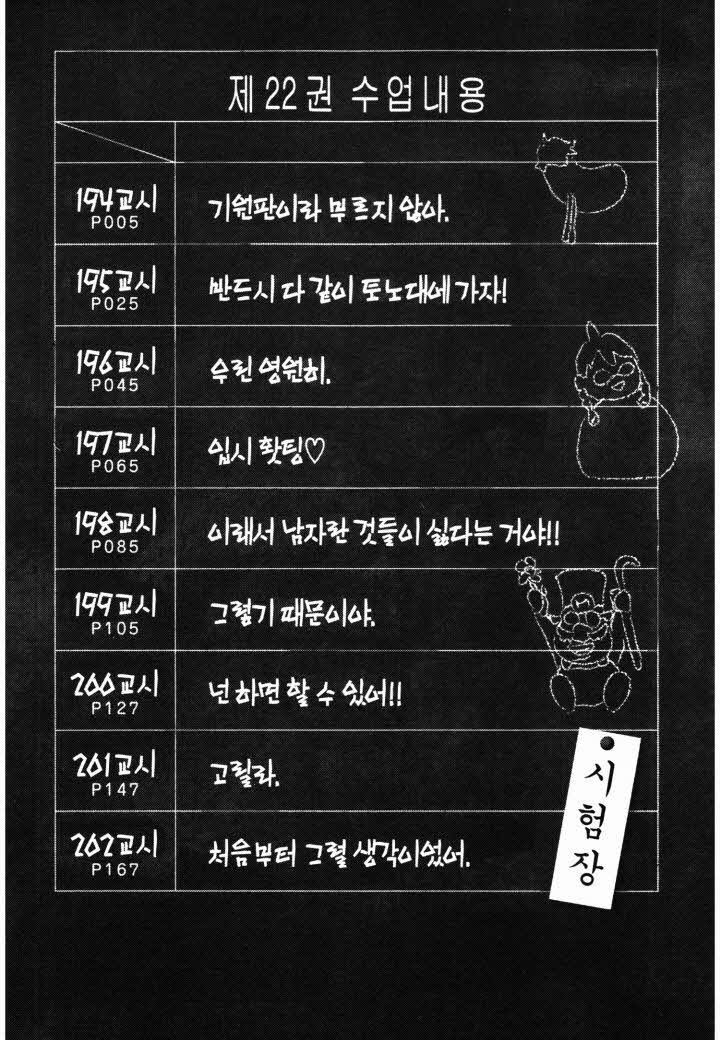 제 22권 수업내용
194교시
P005
기원판이라 부르지 않아.
195교시
P025
반드시 다 같이 토노대에 가자!
196교시
P045
우린 영원히.
197교시
P065
입시 홧팅♡
198교시
P085
이래서 남자란 것들이 싫다는 거야!!
199교시
P105
그렇기 때문이야.
200교시
P127
넌 하면 할 수 있어!!
201교시
P147
고릴라.
202교시
P167
처음부터 그럴 생각이었어.
M
시험장